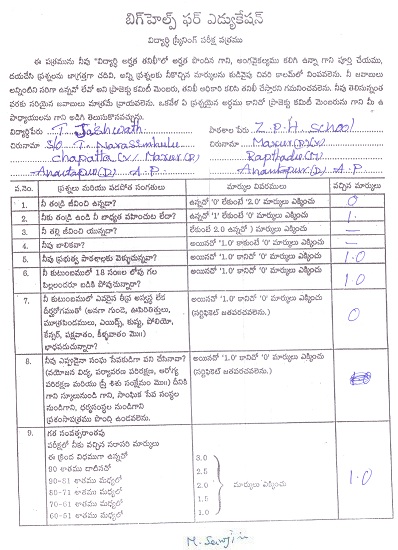 బిగ్‌హెల్ప్ ఫర్ ఎడ్యుకేషన్
విద్యార్థి స్క్రీనింగ్ పరీక్ష పత్రము
ఈ పత్రమును నీవు "విద్యార్థి అర్హత తనిఖీ"లో అర్హత పొందిన గాని, అంగవైకల్యము కలిగి ఉన్నా గాని పూర్తి చేయము,
దయచేసి ప్రశ్నలను జాగ్రత్తగా చదివి, అన్ని ప్రశ్నలకు నీకొచ్చిన మార్కులను కుడివైపు చివరి కాలమ్‌లో నింపవలెను. నీ జవాబులు
అన్నింటిని సరిగా ఉన్నవో లేవో అని ప్రాజెక్టు కమిటీ మెంబరు, తనిఖీ అధికారి కలిసి తనిఖీ చేస్తారని గమనించవలెను. నీవు తెలిసినన్నంత
వరకు సరియైన జవాబులు మాత్రమే వ్రాయవలెను. ఒకవేళ ఏ ప్రశ్నయైన అర్థము కానిచో ప్రాజెక్టు కమిటీ మెంబరును గాని మీ ఉ
పాధ్యాయులను గాని అడిగి తెలుసుకొనవచ్చును.
విద్యార్థిపేరు T. Jashwath పాఠశాల పేరు Z.P.H. School
చిరునామా S/O T. Narasimhulu చిరునామా Masur(P)(V)
Chapatta(V) Masur(P) Rapthadu(M)
Anantapur(D) A.P Anantapur(D) A.P
వ.నెం. ప్రశ్నలు మరియు వడపోత సంగతులు మార్కుల వివరములు వచ్చిన మార్కులు
1. నీ తండ్రి జీవించి ఉన్నాడా? ఉన్నచో '0' లేకుంటే '2.0' మార్కులు ఎక్కించు 0
2. నీకు తండ్రి ఉండి నీ బాధ్యత వహించుట లేదా? ఉన్నచో '1' లేకుంటే '0' మార్కులు ఎక్కించు 1
3. నీ తల్లి జీవించి యున్నదా? లేకుంటే 2.0 ఉన్నచో ) మార్కులు ఎక్కించు –
4. నీవు బాలికవా? అయినచో '1.0' కాకుంటే '0' మార్కులు ఎక్కించు –
5. నీవు ప్రభుత్వ పాఠశాలకు వెళ్ళుచున్నావా? అయినచో '1.0' కానిచో '0' మార్కులు ఎక్కించు 1.0
6. నీ కుటుంబములో 18 సంవ‌‌ల లోపు గల అయినచో '1.0' కానిచో '0' మార్కులు ఎక్కించు 1.0
పిల్లలందరూ బడికి పోవుచున్నారా?
7. నీ కుటుంబములో ఎవరైన దీర్ఘ అస్వస్థ లేక అయినచో '1.0' కానిచో '0' మార్కులు ఎక్కించు 0
దీర్ఘరోగముతో (అనగా గుండె, ఊపిరితిత్తులు, (సర్టిఫికెట్ జతపరచవలెను.)
మూత్రపిండములు, ఎయిడ్స్, కుష్ఠు, పోలియో,
కేన్సర్, పక్షవాతం, కీళ్ళవాతం మొ॥)
బాధపడుచున్నారా?
8. నీవు ఎప్పుడైనా సంఘ సేవకుడిగా పని చేసినావా? అయినచో '1.0' కానిచో '0' మార్కులు ఎక్కించు
(వయోజన విద్య, పర్యావరణ పరిరక్షణ, ఆరోగ్య (సర్టిఫికెట్ జతపరచవలెను.)
పరిరక్షణ మరియు స్త్రీ శిశు సంక్షేమం మొ॥) దీనికి
గాని స్కూలునుండి గాని, సాంఘిక సేవ సంస్థల
నుండిగాని, ధర్మసంస్థల నుండిగాని
ప్రశంసాపత్రము పొంది ఉన్నావా?
9. గత సంవత్సరాంతపు
పరీక్షలో నీకు వచ్చిన సరాసరి మార్కులు
ఈ క్రింది విధముగా ఉన్నచో
90 శాతము దాటినచో 3.0
90-81 శాతము మధ్యలో 2.5
80-71 శాతము మధ్యలో 2.0 మార్కులు ఎక్కించు 1.0
70-61 శాతము మధ్యలో 1.5
60-51 శాతము మధ్యలో 1.0